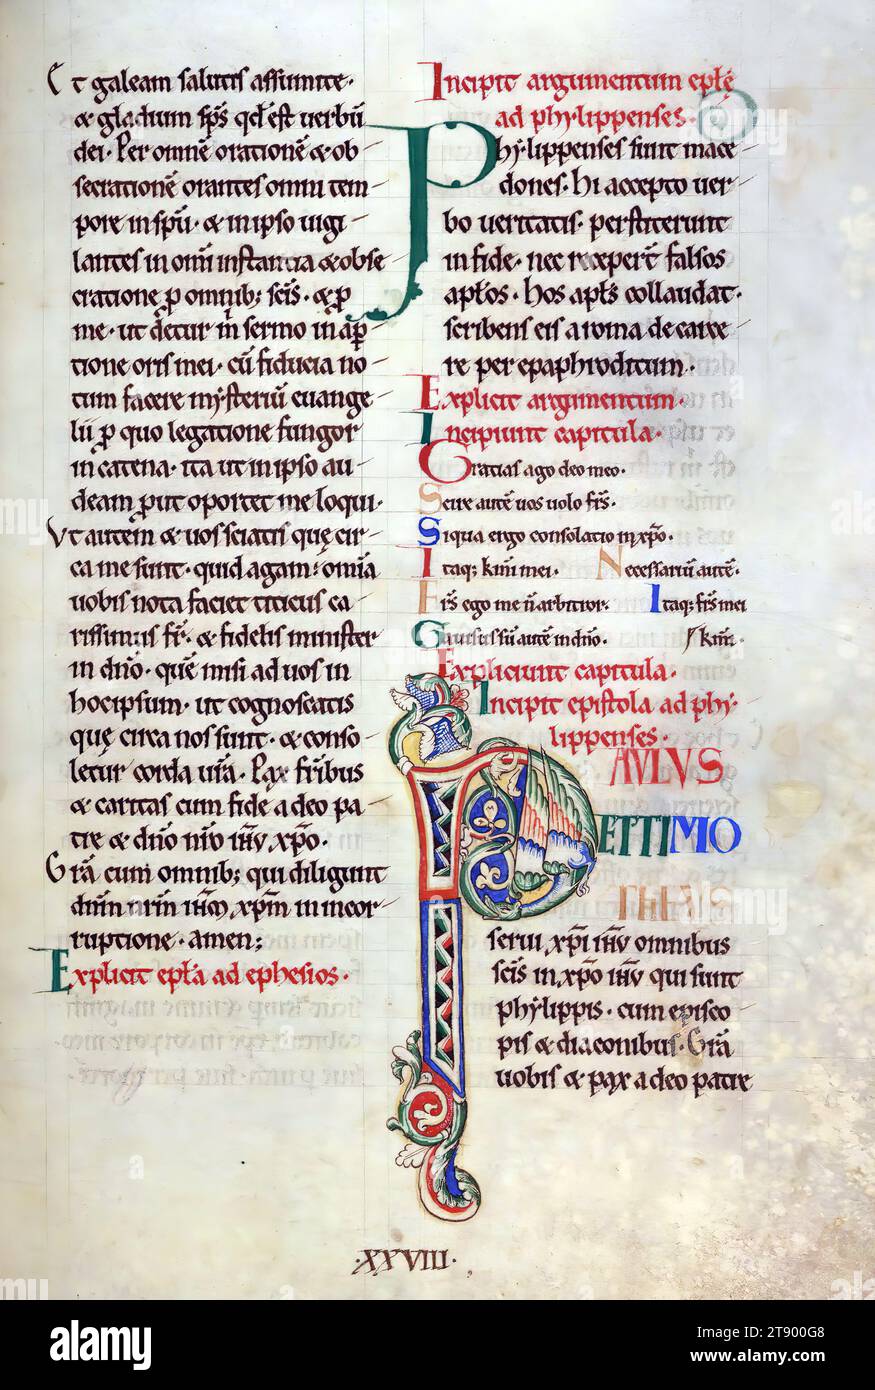 Et galeam salutis assumite·
& gladium sp̅s qd̅ est verbū
dei· Per omnē orationē & ob
secrationē orantes omni tem
pore in spū· & in ipso uigi
lantes in om̅i instantia & obse
cratione p̲ omnib; sc̅is· & p̲
me· ut detur m̅ sermo in ap̲
tione oris mei· cū fiducia no
tum facere mysteriū euange
lii p̲ quo legatione fungor
in catena· ita ut in ipso au
deam prout oportet me loqui·
Vt autem & uos sciatis quę cir
ca me sunt· quid agam: om̅ia
uobis nota faciet titicus ca
rissimus fr̅· & fidelis minister
in dn̅o· quē misi ad uos in
hoc ipsum· ut cognoscatis
quę circa nos sunt· & conso
letur corda ur̅a· Pax fr̅ibus
& caritas cum fide a deo pa
tre & dn̅o nr̅o ih̅u xp̅o·
Gr̅a cum omnib; qui diligunt
dn̅m nr̅m ih̅m xp̅m in incor
ruptione· amen;
Explicit epl̅a ad ephesios·
Incipit argumentum epl̅ę
ad phylippenses·
Phylippenses sunt mace
dones· hi accepto ver
bo veritatis· perstiterunt
in fide· nec recepert̅ falsos
apl̅os· hos apl̅s collaudat·
scribens eis a roma de carce
re per epaphroditum·
Explicit argumentum·
Incipiunt capitula·
Gratias ago deo meo·
Scire autē uos uolo fr̅s·
Siqua ergo consolatio in xp̅o·
Itaq; km̅i mei· Necessariū autē·
Fr̅s ego me n̅ arbitror· Itaq; fr̅s mei
Gauisus sū autē in dn̅o· km̅i·
Expliciunt capitula·
Incipit epistola ad phy·
lippenses·
PAULUS
ET TIMO
THEUS
serui xp̅i ih̅u omnibus
sc̅is in xp̅o ih̅u qui sunt
phylippis· cum episco
pis & diaconibus· Gr̅a
uobis & pax a deo patre
·XXVIII·
alamy
Image ID: 2T900G8
www.alamy.com